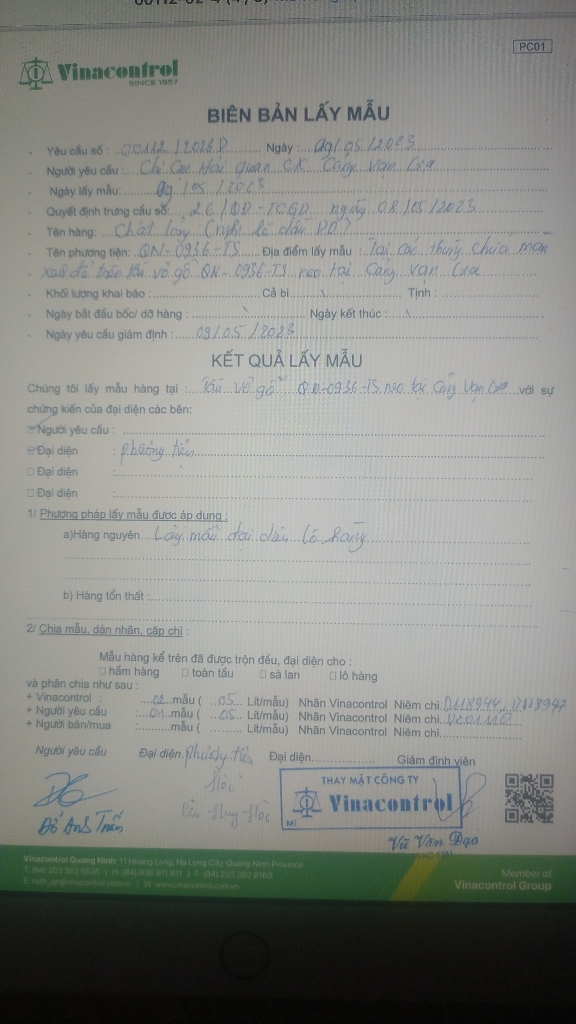 PC01
Vinacontrol
SINCE 1957
BIÊN BẢN LẤY MẪU
- Yêu cầu số : Ngày : 09/05/2023
- Người yêu cầu : Chi Cục Hải quan CK Cảng Vạn Gia
- Ngày lấy mẫu: 09/05/2023
- Quyết định trưng cầu số: 26/QĐ-TCGĐ ngày 08/05/2023
- Tên hàng: Chất lỏng (nghi là dầu DO)
- Tên phương tiện: QN-0936-TS Địa điểm lấy mẫu : Tại các thùng chứa
trên tàu vỏ gỗ QN-0936-TS neo tại Cảng Vạn Gia
- Khối lượng khai báo : Cả bì Tịnh :
- Ngày bắt đầu bốc/ dỡ hàng : Ngày kết thúc :
- Ngày yêu cầu giám định : 09/05/2023
KẾT QUẢ LẤY MẪU
Chúng tôi lấy mẫu hàng tại : Tàu vỏ gỗ QN-0936-TS neo tại Cảng Vạn Gia với sự
chứng kiến của đại diện các bên:
Người yêu cầu :
Đại diện : phương tiện
Đại diện :
Đại diện :
1/ Phương pháp lấy mẫu được áp dụng :
a)Hàng nguyên Lấy mẫu đại diện lô hàng
b) Hàng tổn thất :
2/ Chia mẫu, dán nhãn, cặp chì :
Mẫu hàng kể trên đã được trộn đều, đại diện cho :
hầm hàng toàn tầu sà lan lô hàng
và phân chia như sau :
+ Vinacontrol : 02 mẫu ( 05 Lít/mẫu) Nhãn Vinacontrol Niêm chì
+ Người yêu cầu : 01 mẫu ( 05 Lít/mẫu) Nhãn Vinacontrol Niêm chì
+ Người bán/mua : mẫu ( Lít/mẫu) Nhãn Vinacontrol Niêm chì
Người yêu cầu Đại diện phương tiện Đại diện Giám định viên
THAY MẶT CÔNG TY
Vinacontrol
Vũ Văn Đạo
Vinacontrol Quang Ninh: 11 Hoang Long, Ha Long City, Quang Ninh Province
Member of
Vinacontrol Group